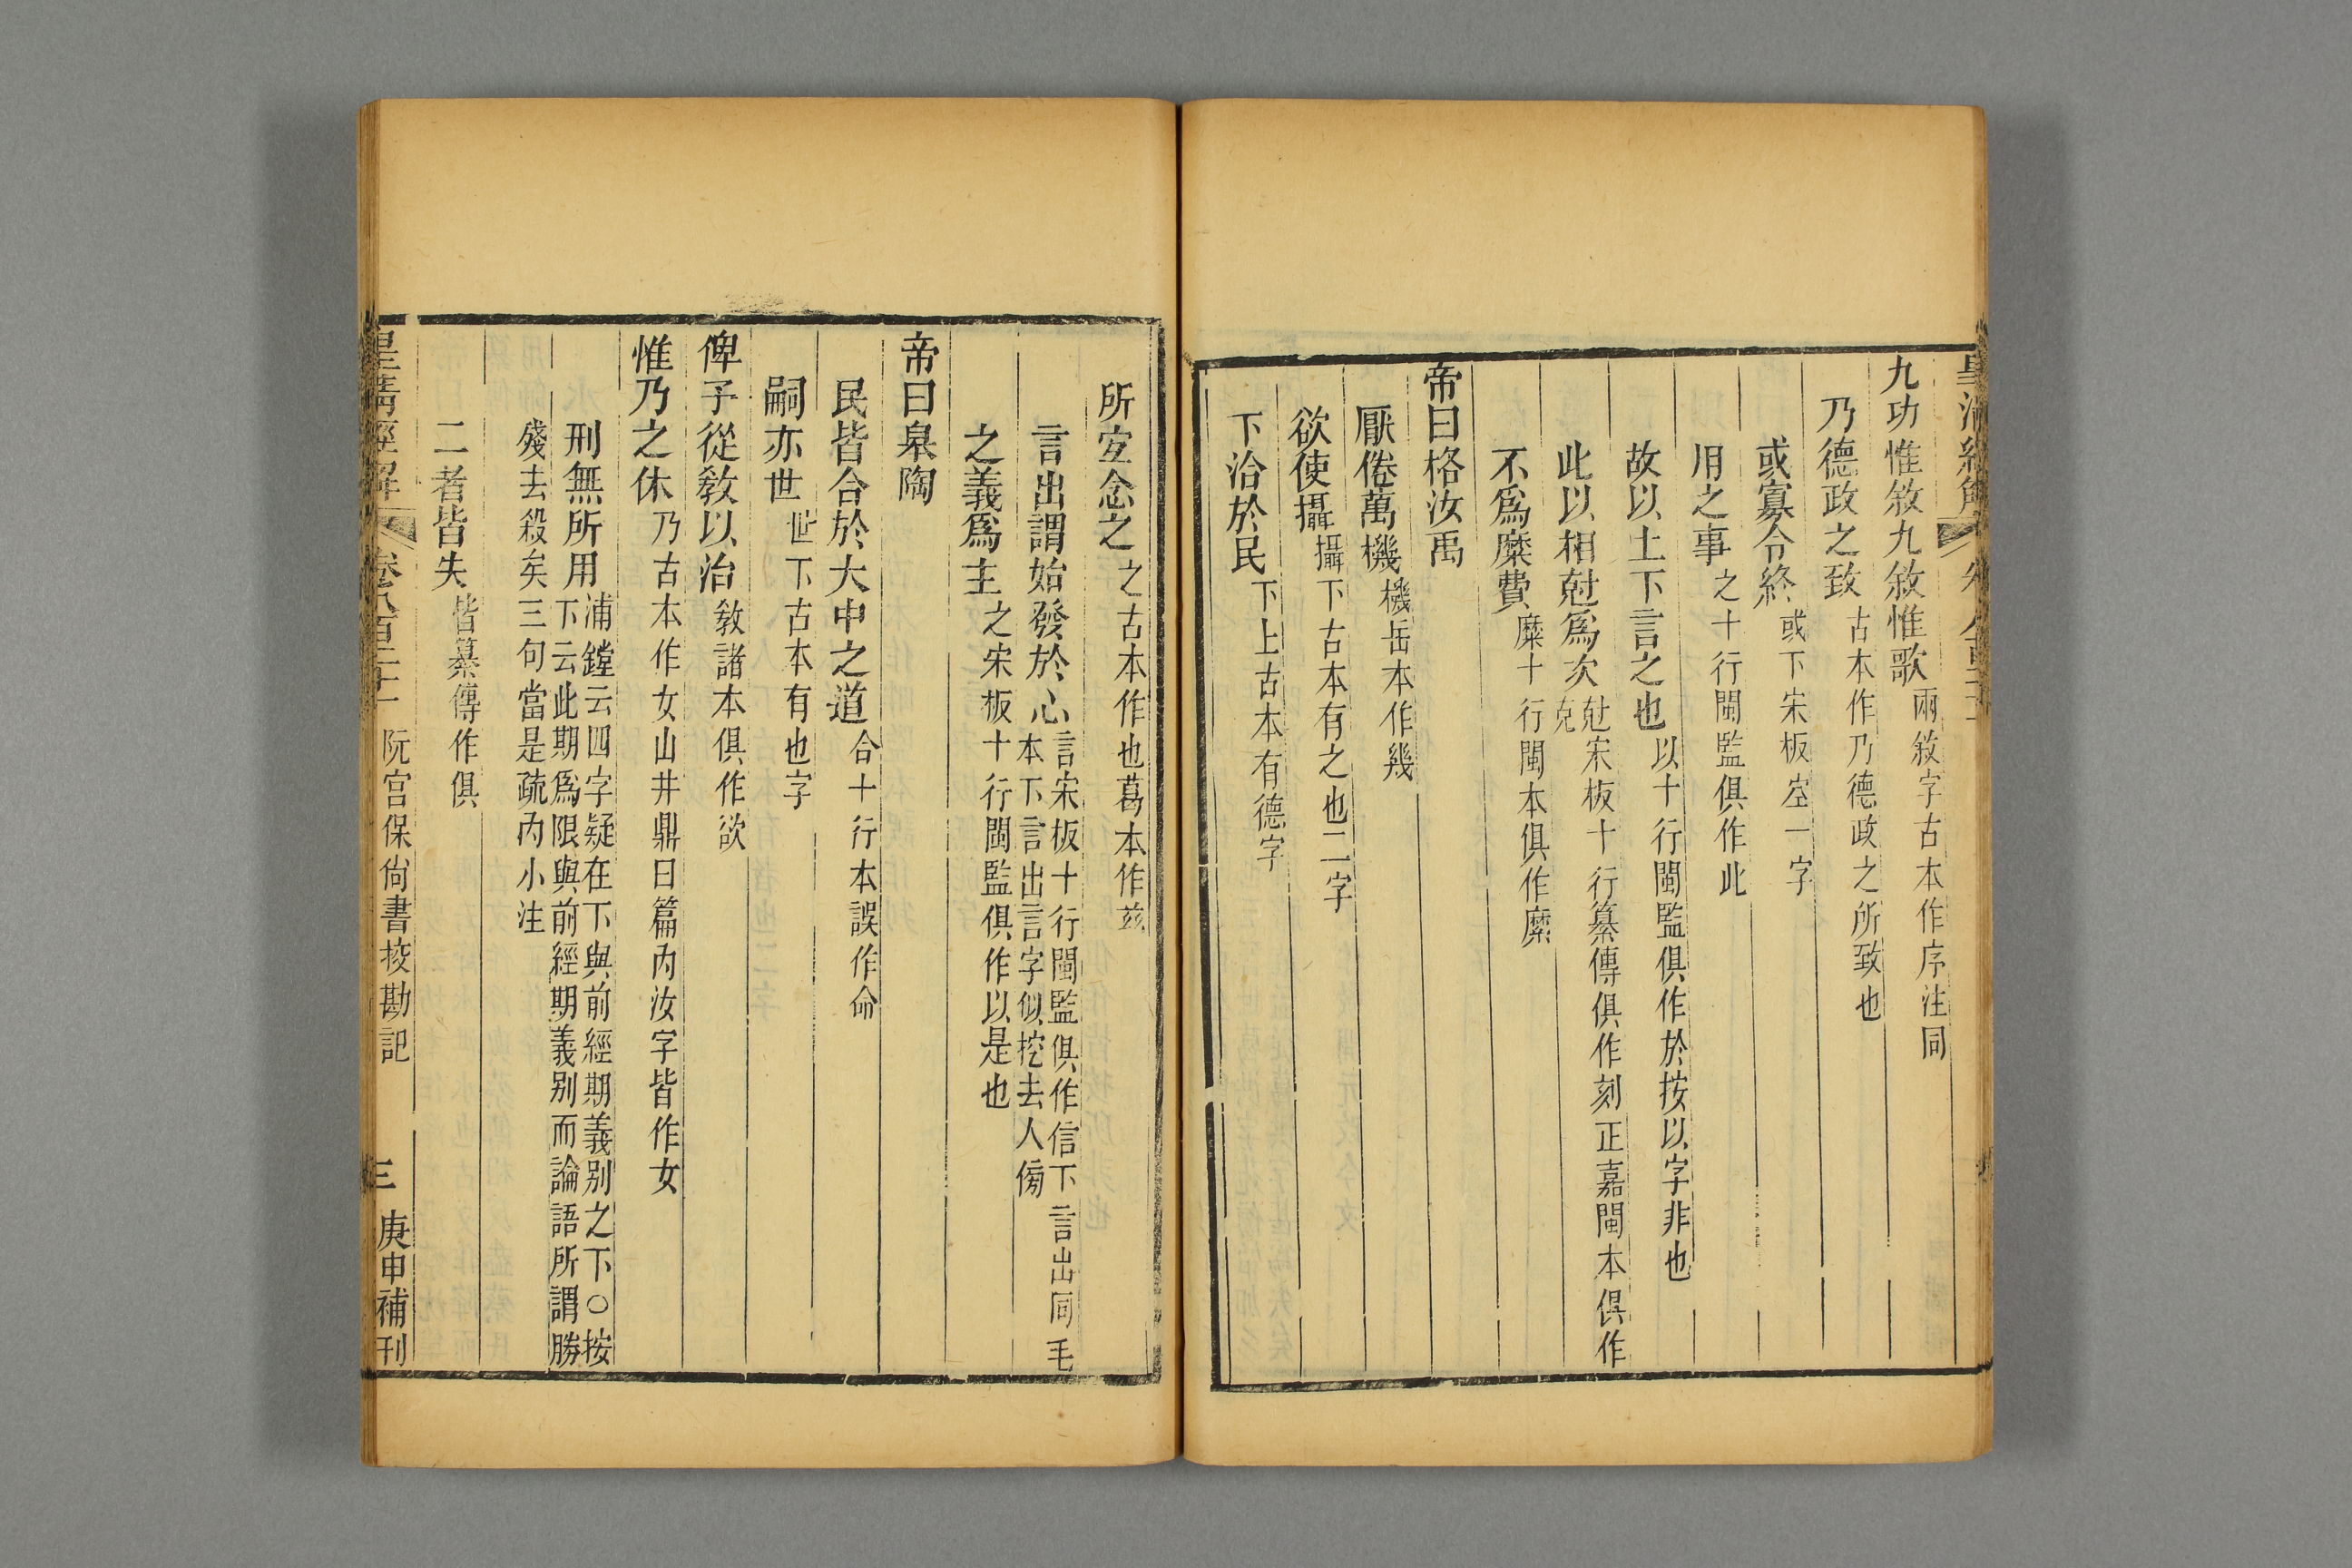 九功惟敘九敘惟歌兩敘字古本作序注同
乃德政之致古本作乃德政之所致也
或寡令終或下宋板空一字
用之事之十行閩監俱作此
故以土下言之也以十行閩監俱作於按以字非也
此以相尅爲次尅宋板十行纂傳俱作刻正嘉閩本俱作
克
不爲糜費糜十行閩本俱作縻
帝曰格汝禹
厭倦萬機機岳本作幾
欲使攝攝下古本有之也二字
下洽於民下上古本有德字
所宐念之之古本作也葛本作兹
言出謂始發於心言宋板十行閩監俱作信下言出同毛
本下言出言字似挖去人傍
之義爲主之宋板十行閩監俱作以是也
帝曰皋陶
民皆合於大中之道合十行本誤作命
嗣亦世世下古本有也字
俾予從敎以治敎諸本俱作欲
惟乃之休乃古本作女山井鼎曰篇內汝字皆作女
刑無所用浦鏜云四字疑在下與前經期義别之下○按
下云此期爲限與前經期義别而論語所謂勝
殘去殺矣三句當是疏內小注
二者皆失皆纂傳作俱
皇淸經解 卷八百二十一 阮宮保尙書挍勘記 三 庚申補刊